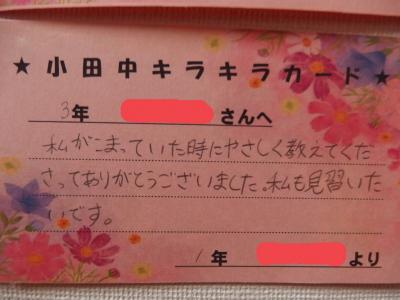 ★小田中キラキラカード★
3年 さんへ
私がこまっていた時にやさしく教えてくだ
さってありがとうございました。私も見習いた
いです。
1年 より